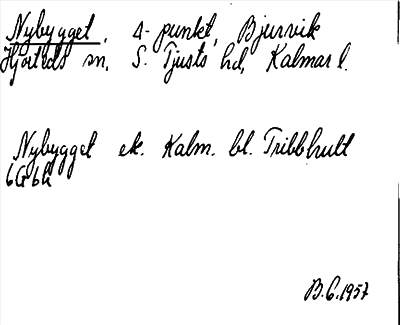 Nybygget, 4-punkt, Bjurvik
Hjorteds sn, S. Tjusts hd, Kalmar l.
Nybygget ek. Kalm. bl. Tribbhult
6G6h
B.G.1957